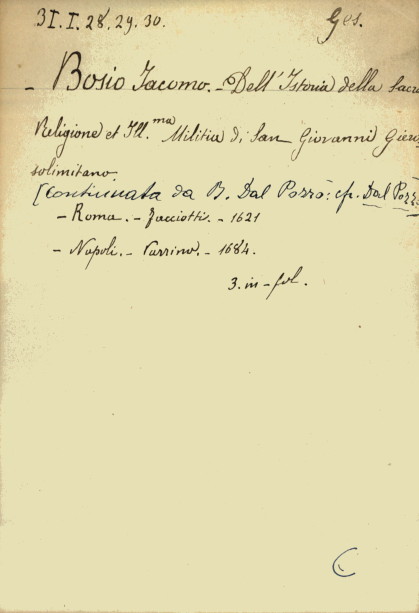 31. I. 28, 29. 30. Ges.
- Bosio Iacomo. - Dell' Istoria della Sacra
Religione et Ill.ma Militia di San Giovanni Gieru
solimitano.
[Continuata da B. Dal Pozzo: cf. Dal Pozz
- Roma. - Facciotti. - 1621
- Napoli. - Parrino. - 1684.
3. in-fol.
C